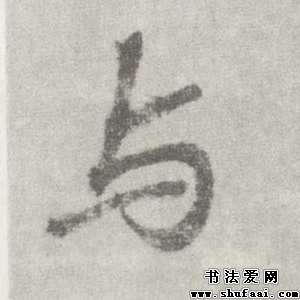 与
书法爱网
www.shufaai.com